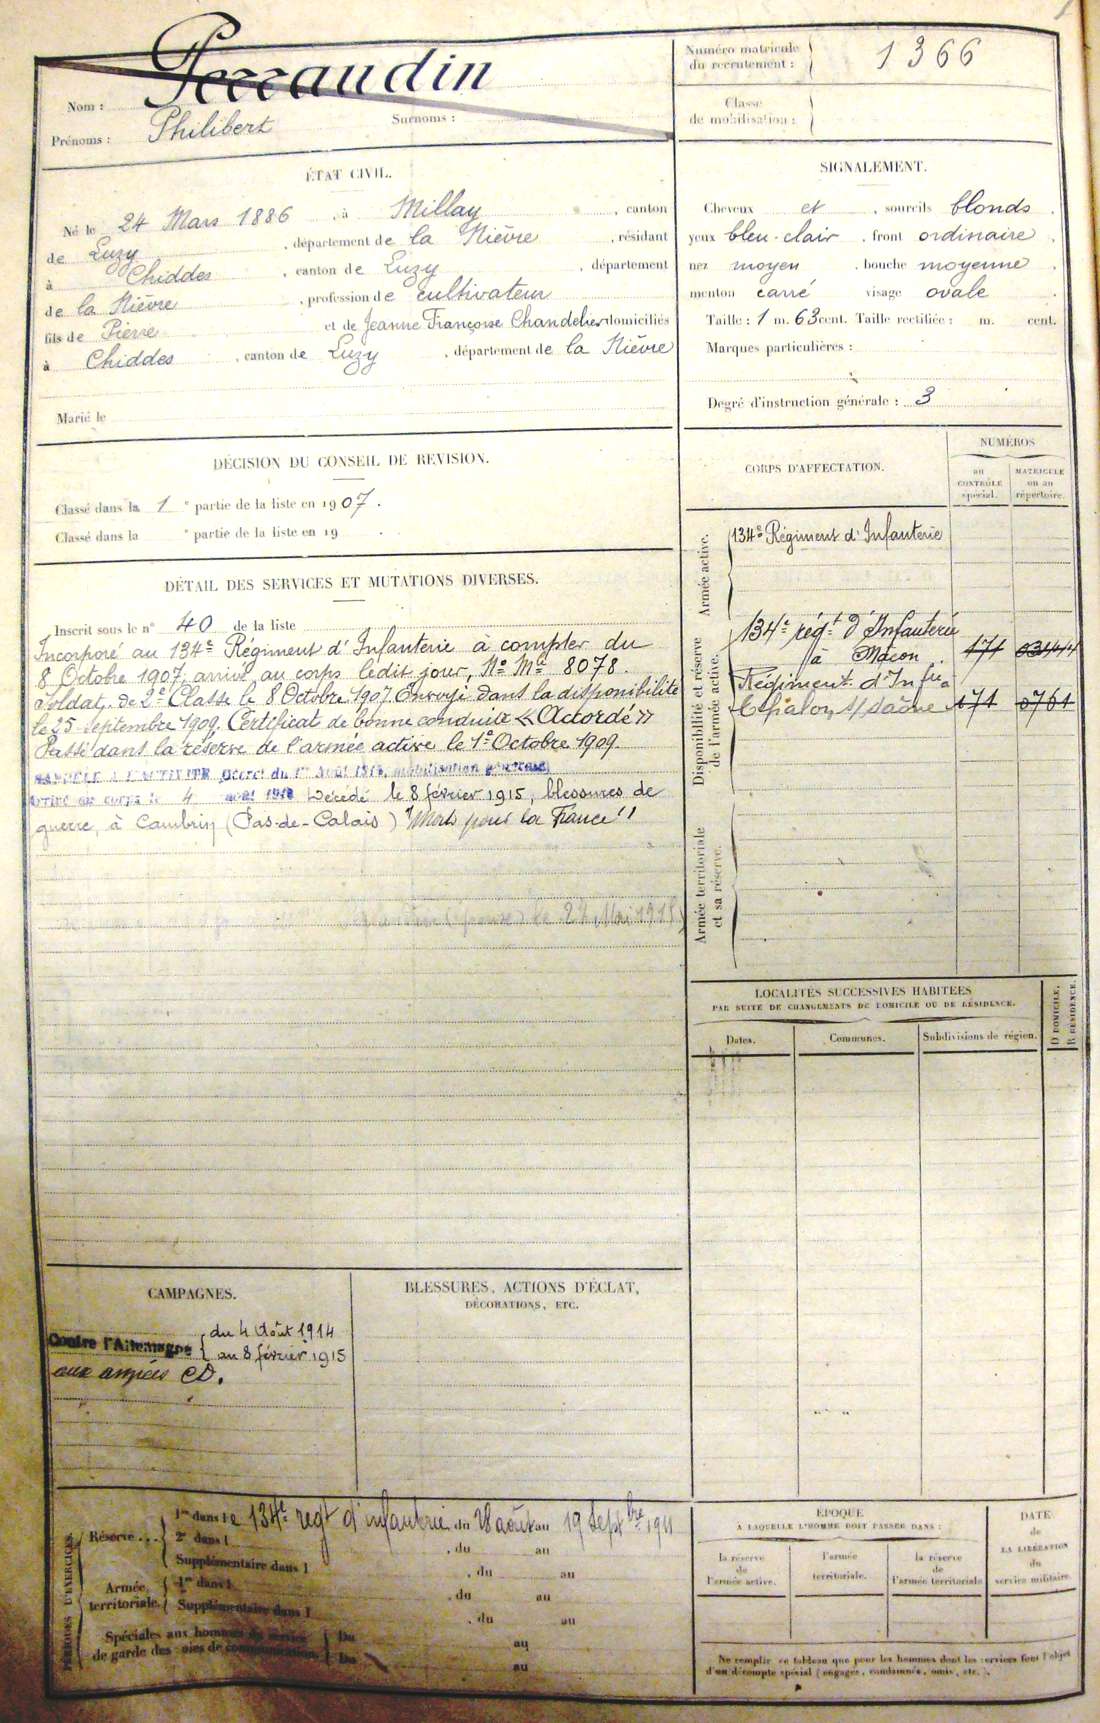 Nom : Perraudin
Prénoms : Philibert Surnoms :
Numéro matricule
du recrutement : 1366
Classe
de mobilisation :
ÉTAT CIVIL.
Né le 24 Mars 1886, à Millay, canton
de Luzy, département de la Nièvre, résidant
à Chiddes, canton de Luzy, département
de la Nièvre, profession de cultivateur
fils de Pierre et de Jeanne Françoise Chandelier domiciliés
à Chiddes, canton de Luzy, département de la Nièvre
Marié le
SIGNALEMENT.
Cheveux et, sourcils blonds.
yeux bleu-clair, front ordinaire,
nez moyen, bouche moyenne,
menton carré visage ovale.
Taille : 1 m. 63 cent. Taille rectifiée : m. cent.
Marques particulières :
Degré d'instruction générale : 3
DÉCISION DU CONSEIL DE REVISION.
Classé dans la 1e partie de la liste en 1907.
Classé dans la e partie de la liste en 19 .
DÉTAIL DES SERVICES ET MUTATIONS DIVERSES.
Inscrit sous le n° 40 de la liste
Incorporé au 134e Régiment d'Infanterie à compter du
8 Octobre 1907, arrivé au corps ledit jour, No Mle 8078.
Soldat de 2e Classe le 8 Octobre 1907 Envoyé dans la disponibilité
le 25 septembre 1909. Certificat de bonne conduite « Accordé »
Passé dans la réserve de l'armée active le 1er Octobre 1909.
RAPPELÉ A L'ACTIVITÉ Décret du 1er Août 1914, mobilisation générale
Arrivé au corps le 4 août 1914 Décédé le 8 février 1915, blessures de
guerre, à Cambrin (Pas-de-Calais) Mort pour la France"
CORPS D'AFFECTATION.
NUMÉROS
au
CONTRÔLE
spécial.
MATRICULE
ou au
répertoire.
Armée active.
134e Régiment d'Infanterie
Disponibilité et réserve
de l'armée active.
134e régt d'Infanterie
à Macon. 171
Régiment d'Infie
Chalon s/Saône 171 0761
Armée territoriale
et sa réserve.
LOCALITÉS SUCCESSIVES HABITÉES
PAR SUITE DE CHANGEMENTS DE DOMICILE OU DE RÉSIDENCE.
Dates. Communes. Subdivisions de région. D DOMICILE.
R RÉSIDENCE.
CAMPAGNES.
Contre l'Allemagne { du 4 Août 1914
au 8 février 1915
aux armées CD.
BLESSURES, ACTIONS D'ÉCLAT,
DÉCORATIONS, ETC.
PÉRIODES D'EXERCICES.
Réserve... 1re dans le 134e regt d'infanterie du 28 août au 19 Septbre 1911
2e dans l , du au
Supplémentaire dans l , du au
Armée
territoriale. 1re dans l , du au
Supplémentaire dans l , du au
Spéciales aux hommes du service
de garde des voies de communication. Du au
Du au
ÉPOQUE
A LAQUELLE L'HOMME DOIT PASSER DANS :
la réserve
de
l'armée active.
l'armée
territoriale.
la réserve
de
l'armée territoriale
DATE
de
LA LIBÉRATION
du
service militaire.
Ne remplir ce tableau que pour les hommes dont les services font l'objet
d'un décompte spécial (engagés, condamnés, omis, etc.).